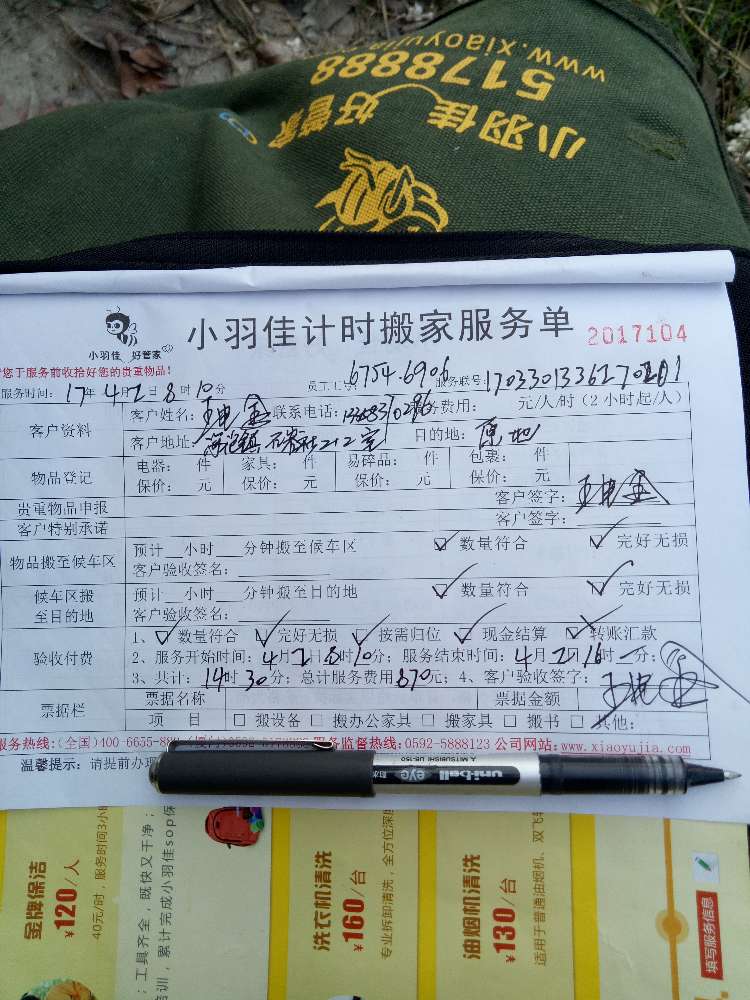 www.xiaoyujia.c
5178888
小羽佳 好管家
小羽佳 好管家
小羽佳计时搬家服务单
2017104
您于服务前收拾好您的贵重物品!
服务时间: 17年4月2日8时10分 员工工号: 6754.6906 服务联号:
客户资料
客户姓名: 联系电话: 费用: 元/人/时(2小时起/人)
客户地址: 212室 目的地: 原地
物品登记
电器: 件 家具: 件 易碎品: 件 包裹: 件
保价: 元 保价: 元 保价: 元 保价: 元
贵重物品申报 客户签字:
客户特别承诺 客户签字:
物品搬至候车区
预计__小时__分钟搬至候车区 ☑ 数量符合 ☑ 完好无损
客户验收签名:
候车区搬至目的地
预计__小时__分钟搬至目的地 ☑ 数量符合 ☑ 完好无损
客户验收签名:
验收付费
1、☑ 数量符合 ☑ 完好无损 ☑ 按需归位 ☑ 现金结算 ☒ 转账汇款
2、服务开始时间: 4月2日8时10分; 服务结束时间: 4月2日16时 分;
3、共计: 14时30分; 总计服务费用870元; 4、客户验收签字:
票据栏
票据名称 票据金额
项 目 □ 搬设备 □ 搬办公家具 □ 搬家具 □ 搬书 □ 其他:
服务热线:(全国)400-6655-88 服务监督热线:0592-5888123 公司网站:www.xiaoyujia.com
温馨提示: 请提前办理
uni-ball eye
MITSUBISHI UB-150
金牌保洁
¥120/人
40元/时, 服务时间3小
工具齐全, 既快又干净;
培训, 累计完成小羽佳sop保
洗衣机清洗
¥160/台
专业拆卸清洗, 全方位深度
油烟机清洗
¥130/台
适用于普通油烟机、双飞
填写服务信息